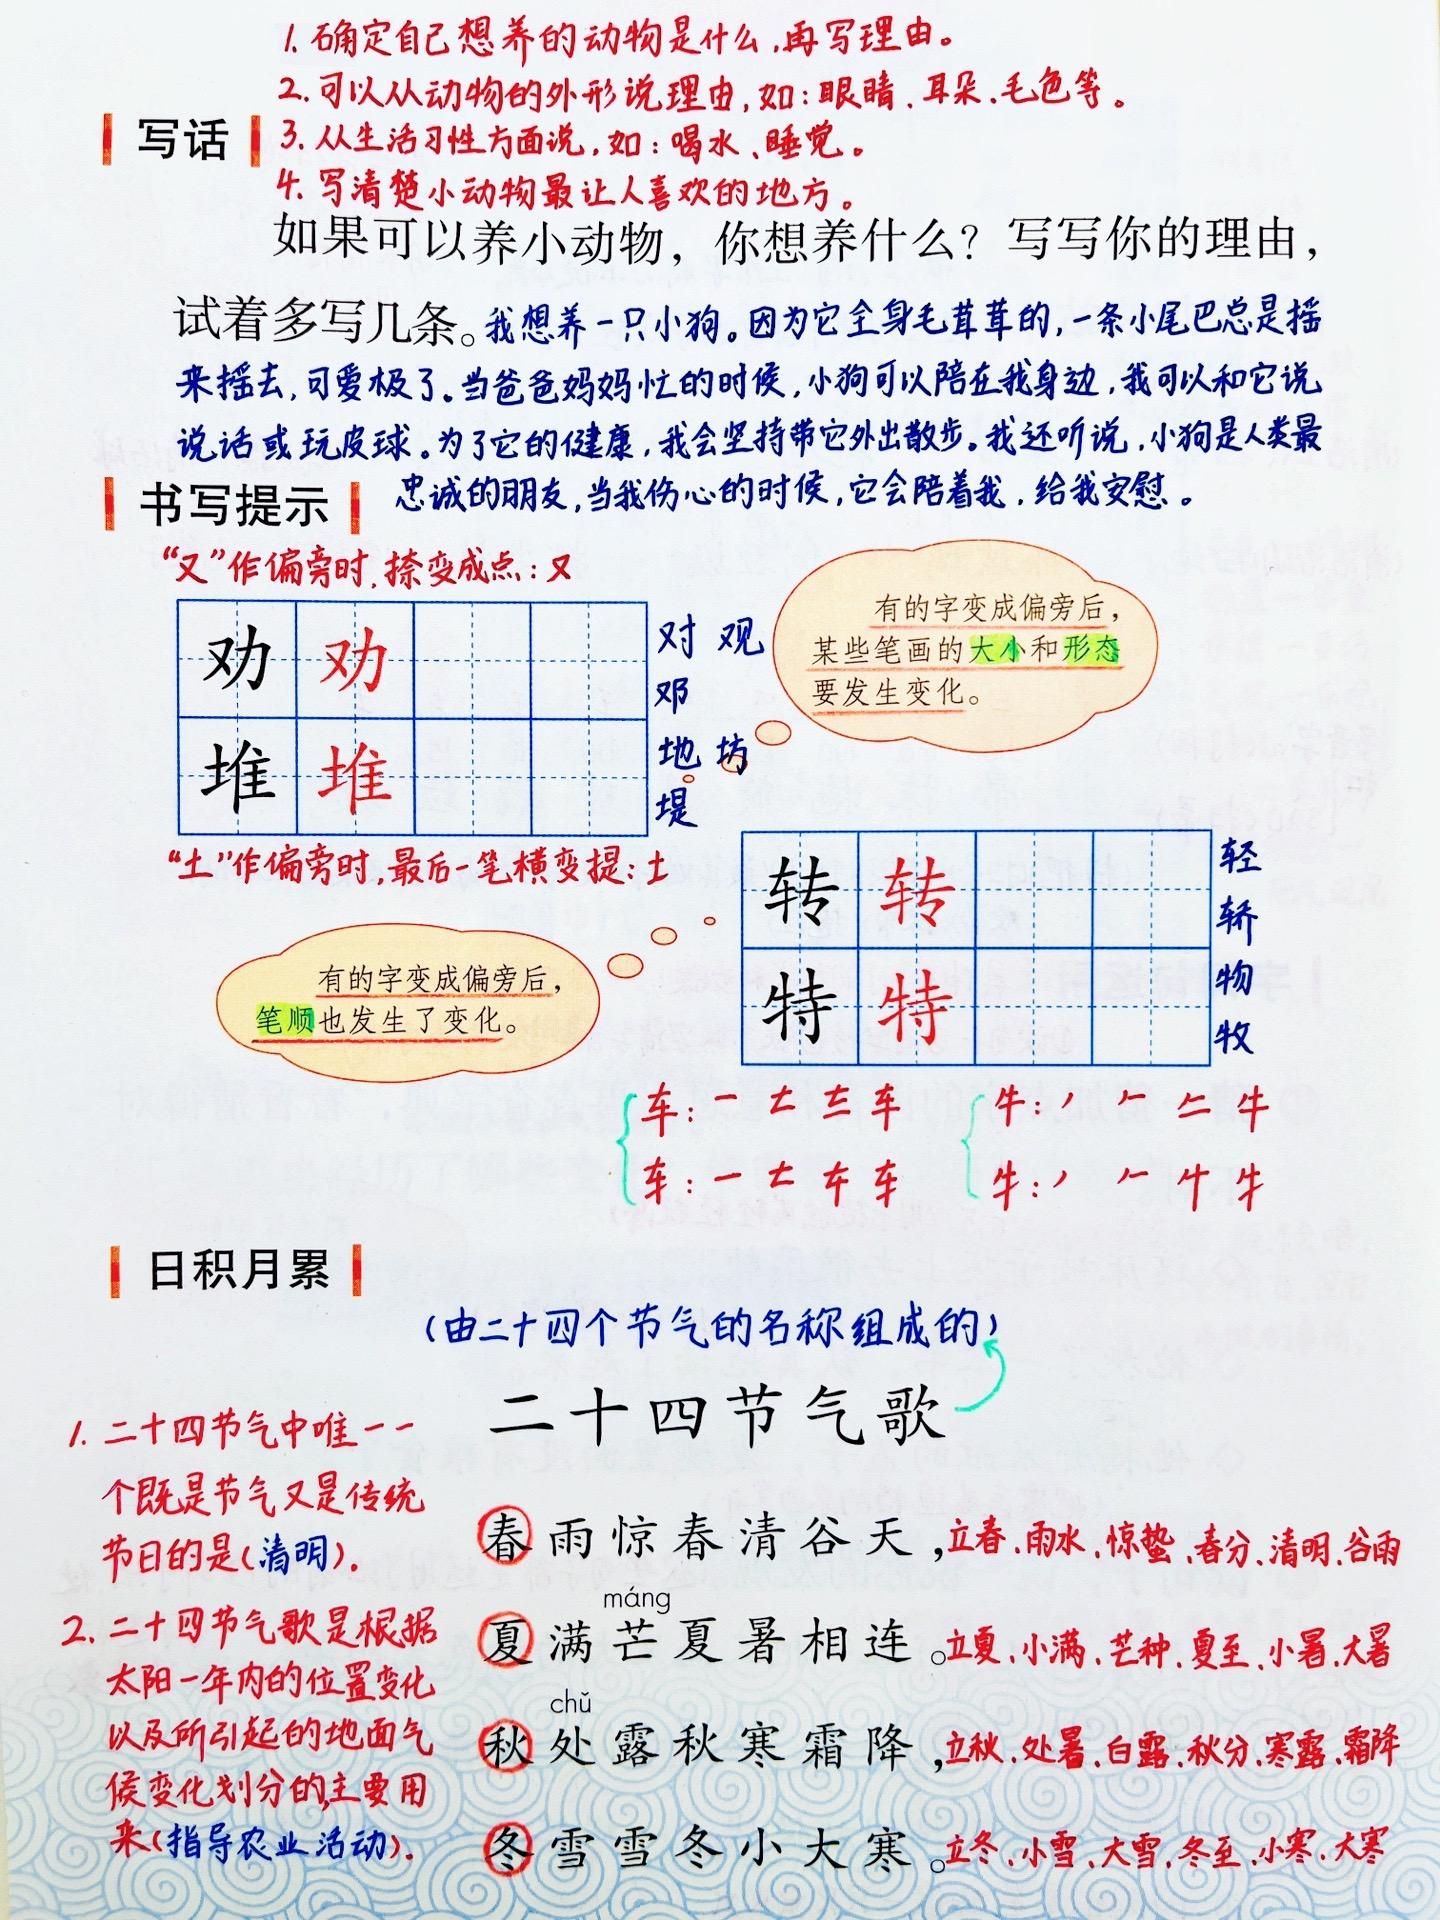 1. 确定自己想养的动物是什么,再写理由。
2. 可以从动物的外形说理由,如:眼睛、耳朵、毛色等。
写话
3. 从生活习性方面说,如:喝水、睡觉。
4. 写清楚小动物最让人喜欢的地方。
如果可以养小动物，你想养什么？写写你的理由，
试着多写几条。我想养一只小狗。因为它全身毛茸茸的,一条小尾巴总是摇
来摇去,可爱极了。当爸爸妈妈忙的时候,小狗可以陪在我身边,我可以和它说
说话或玩皮球。为了它的健康,我会坚持带它外出散步。我还听说,小狗是人类最
忠诚的朋友,当我伤心的时候,它会陪着我,给我安慰。
书写提示
“又”作偏旁时,捺变成点:又
有的字变成偏旁后，
某些笔画的大小和形态
要发生变化。
劝 劝 对 观
邓
堆 堆 地 坊
堤
“土”作偏旁时,最后一笔横变提:土
有的字变成偏旁后，
笔顺也发生了变化。
转 转 轻
轿
特 特 物
牧
车: 一 𠂇 三 车
车: 一 车
牛: 丿 𠂉 牛
牛: 丿 𠂉 牛
日积月累
(由二十四个节气的名称组成的)
二十四节气歌
1. 二十四节气中唯一一
个既是节气又是传统
节日的是(清明).
2. 二十四节气歌是根据
太阳一年内的位置变化
以及所引起的地面气
候变化划分的,主要用
来(指导农业活动).
春雨惊春清谷天，立春、雨水、惊蛰、春分、清明、谷雨
máng
夏满芒夏暑相连。立夏、小满、芒种、夏至、小暑、大暑
chǔ
秋处露秋寒霜降，立秋、处暑、白露、秋分、寒露、霜降
冬雪雪冬小大寒。立冬、小雪、大雪、冬至、小寒、大寒